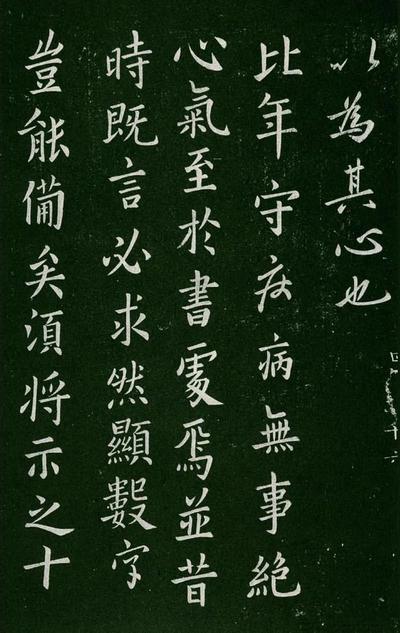 以為其心也
比年守疾病無事絕
心氣至於書處焉並昔
時既言必求然顯數字
豈能備矣須將示之十